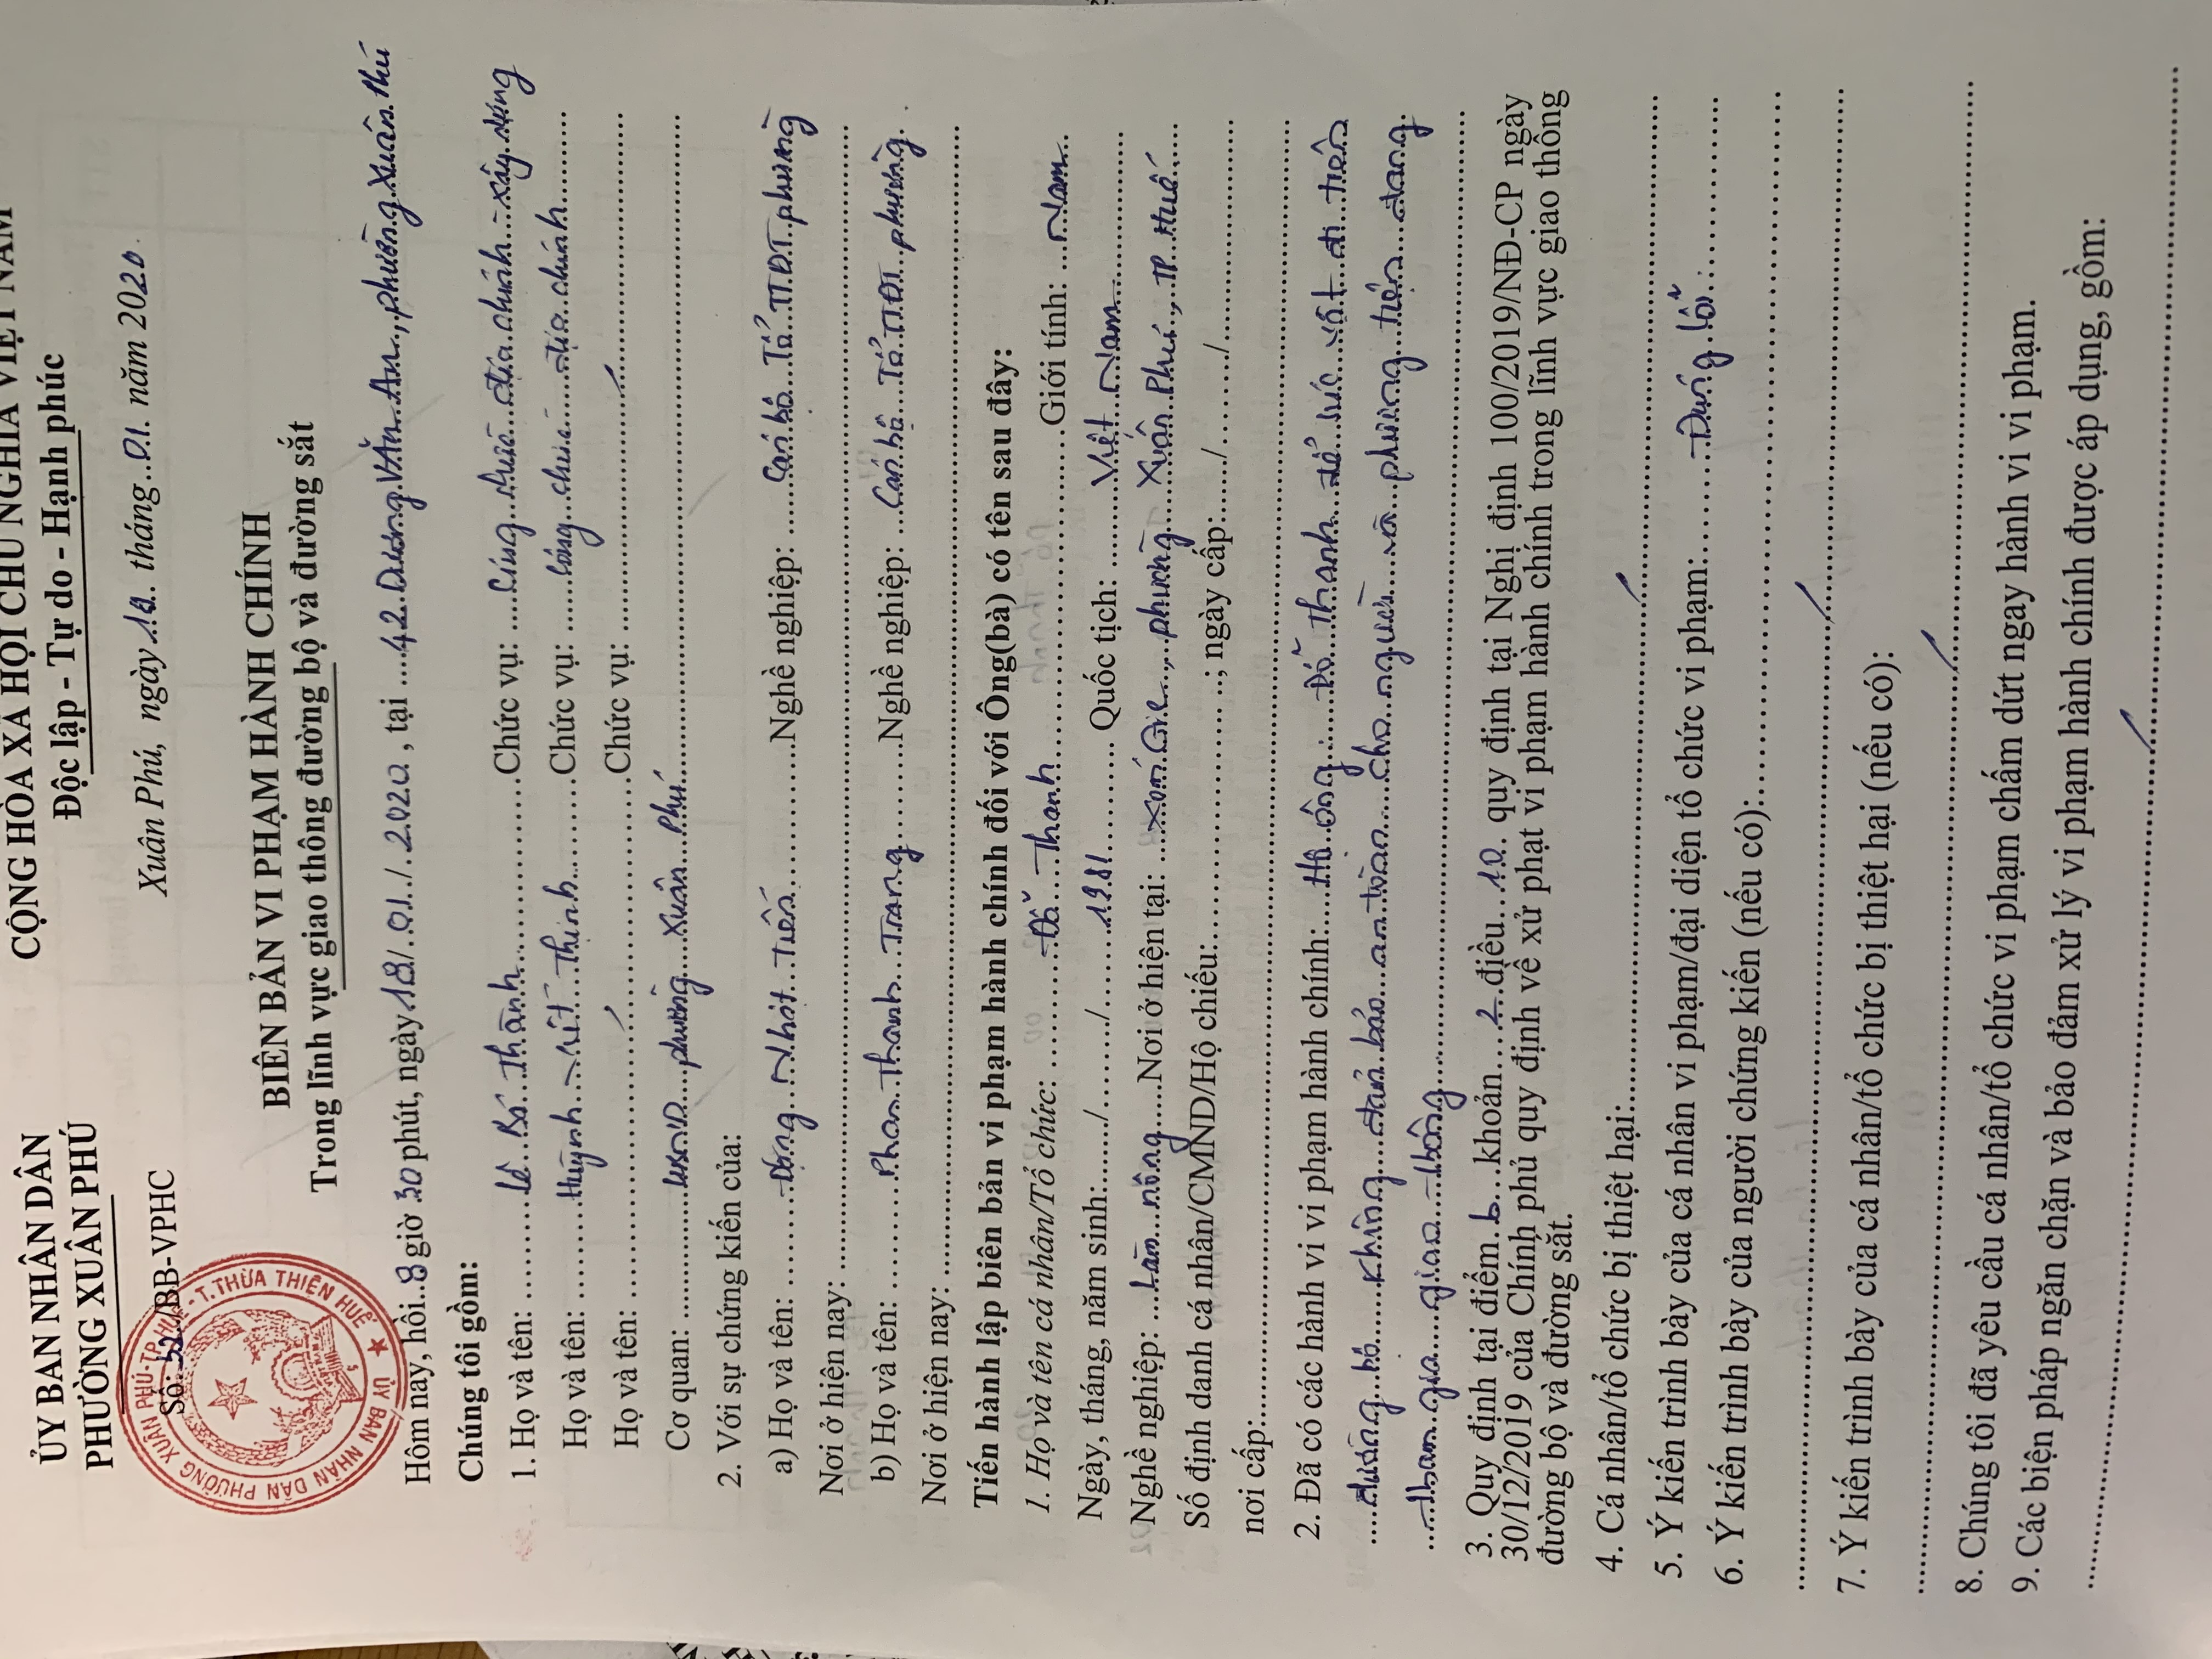 ỦY BAN NHÂN DÂN
PHƯỜNG XUÂN PHÚ
Số: 52/BB-VPHC
CỘNG HÒA XÃ HỘI CHỦ NGHĨA VIỆT NAM
Độc lập - Tự do - Hạnh phúc
Xuân Phú, ngày 18 tháng 01 năm 2020
ỦY BAN NHÂN DÂN PHƯỜNG XUÂN PHÚ - TP HUẾ - T. THỪA THIÊN HUẾ
BIÊN BẢN VI PHẠM HÀNH CHÍNH
Trong lĩnh vực giao thông đường bộ và đường sắt
Hôm nay, hồi 8 giờ 30 phút, ngày 18/01/2020, tại 42 Dương Văn An, phường Xuân Phú
Chúng tôi gồm:
1. Họ và tên: Lê Bá Thành Chức vụ: Công chức địa chính - xây dựng
Họ và tên: Huỳnh Viết Thịnh Chức vụ: Công chức địa chính
Họ và tên: / Chức vụ: /
Cơ quan: UBND phường Xuân Phú
2. Với sự chứng kiến của:
a) Họ và tên: Đặng Nhật Tiến Nghề nghiệp: Cán bộ Tổ TTĐT phường
Nơi ở hiện nay:
b) Họ và tên: Phan Thanh Trang Nghề nghiệp: Cán bộ Tổ TTĐT phường
Nơi ở hiện nay:
Tiến hành lập biên bản vi phạm hành chính đối với Ông(bà) có tên sau đây:
1. Họ và tên cá nhân/Tổ chức: Đỗ Thanh Giới tính: Nam
Ngày, tháng, năm sinh: / / 1981 Quốc tịch: Việt Nam
Nghề nghiệp: Làm nông Nơi ở hiện tại: Xóm Gie, phường Xuân Phú, TP Huế
Số định danh cá nhân/CMND/Hộ chiếu: ; ngày cấp: / /
nơi cấp:
2. Đã có các hành vi vi phạm hành chính: Hộ ông: Đỗ Thanh để súc vật đi trên
đường bộ không đảm bảo an toàn cho người và phương tiện đang
tham gia giao thông
3. Quy định tại điểm b khoản 2 điều 10 quy định tại Nghị định 100/2019/NĐ-CP ngày
30/12/2019 của Chính phủ quy định về xử phạt vi phạm hành chính trong lĩnh vực giao thông
đường bộ và đường sắt.
4. Cá nhân/tổ chức bị thiệt hại: /
5. Ý kiến trình bày của cá nhân vi phạm/đại diện tổ chức vi phạm: Đúng lỗi
6. Ý kiến trình bày của người chứng kiến (nếu có):
/
7. Ý kiến trình bày của cá nhân/tổ chức bị thiệt hại (nếu có):
/
8. Chúng tôi đã yêu cầu cá nhân/tổ chức vi phạm chấm dứt ngay hành vi vi phạm.
9. Các biện pháp ngăn chặn và bảo đảm xử lý vi phạm hành chính được áp dụng, gồm:
/